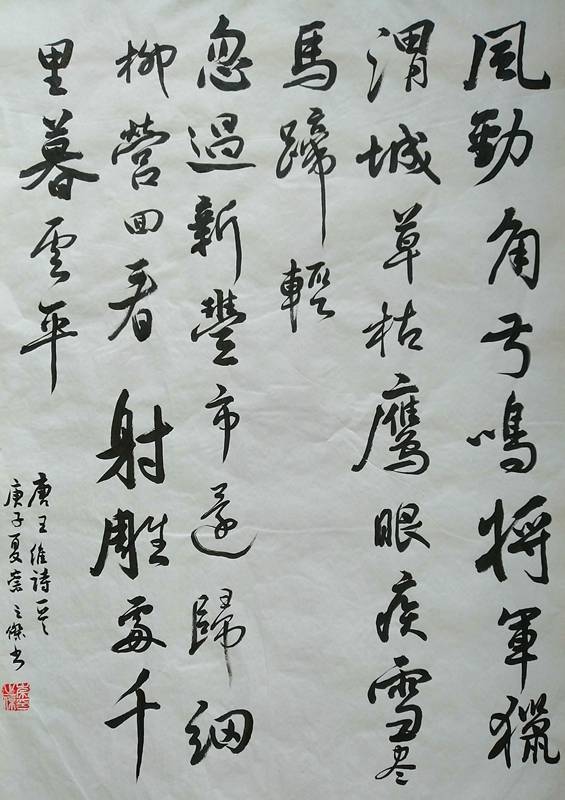 風勁角弓鳴將軍獵
渭城草枯鷹眼疾雪尽
馬蹄輕
忽過新豐市還歸細
柳營回看射雕處千
里暮云平
唐王維詩一首
庚子夏 之傑书